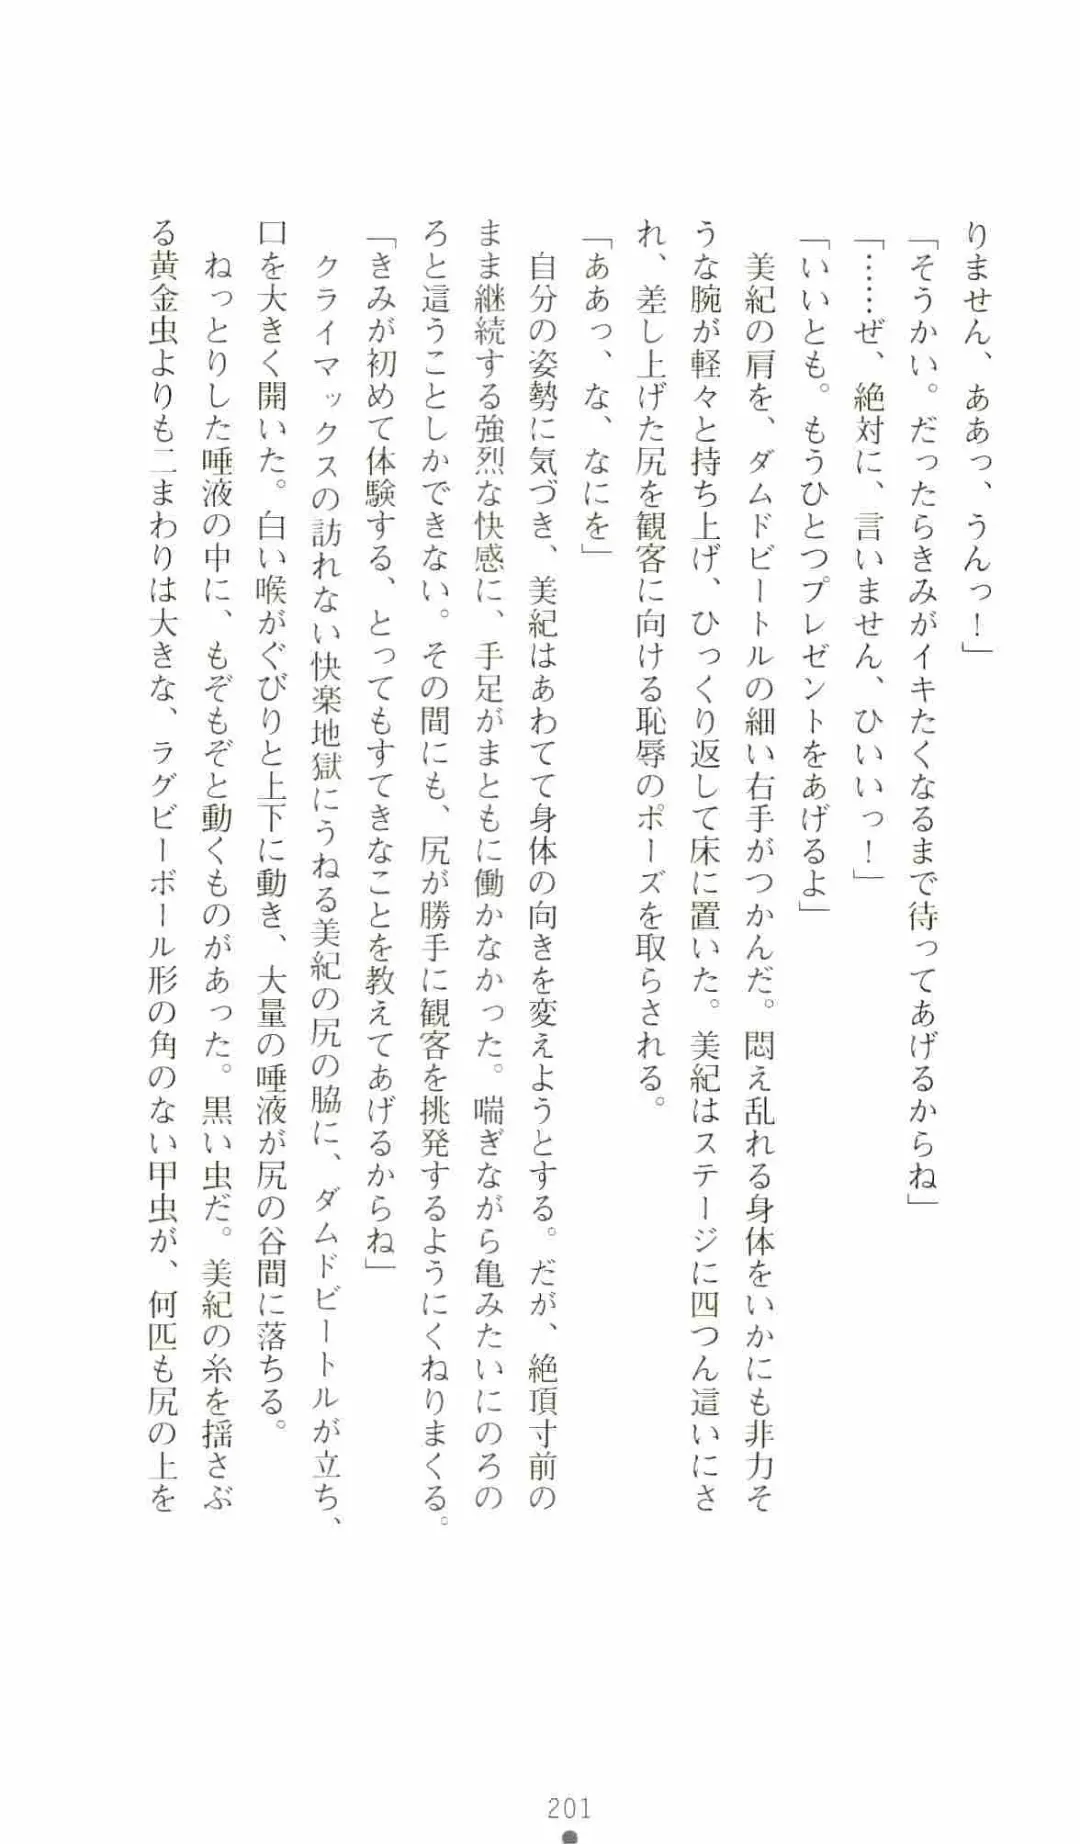 りません、ああっ、うんっ！」
「そうかい。だったらきみがイキたくなるまで待ってあげるからね」
「……ぜ、絶対に、言いません、ひいいっ！」
「いいとも。もうひとつプレゼントをあげるよ」
　美紀の肩を、ダムドビートルの細い右手がつかんだ。悶え乱れる身体をいかにも非力そ
うな腕が軽々と持ち上げ、ひっくり返して床に置いた。美紀はステージに四つん這いにさ
れ、差し上げた尻を観客に向ける恥辱のポーズを取らされる。
「ああっ、な、なにを」
　自分の姿勢に気づき、美紀はあわてて身体の向きを変えようとする。だが、絶頂寸前の
まま継続する強烈な快感に、手足がまともに働かなかった。喘ぎながら亀みたいにのろの
ろと這うことしかできない。その間にも、尻が勝手に観客を挑発するようにくねりまくる。
「きみが初めて体験する、とってもすてきなことを教えてあげるからね」
　クライマックスの訪れない快楽地獄にうねる美紀の尻の脇に、ダムドビートルが立ち、
口を大きく開いた。白い喉がぐびりと上下に動き、大量の唾液が尻の谷間に落ちる。
　ねっとりした唾液の中に、もぞもぞと動くものがあった。黒い虫だ。美紀の糸を揺さぶ
る黄金虫よりも二まわりは大きな、ラグビーボール形の角のない甲虫が、何匹も尻の上を
201